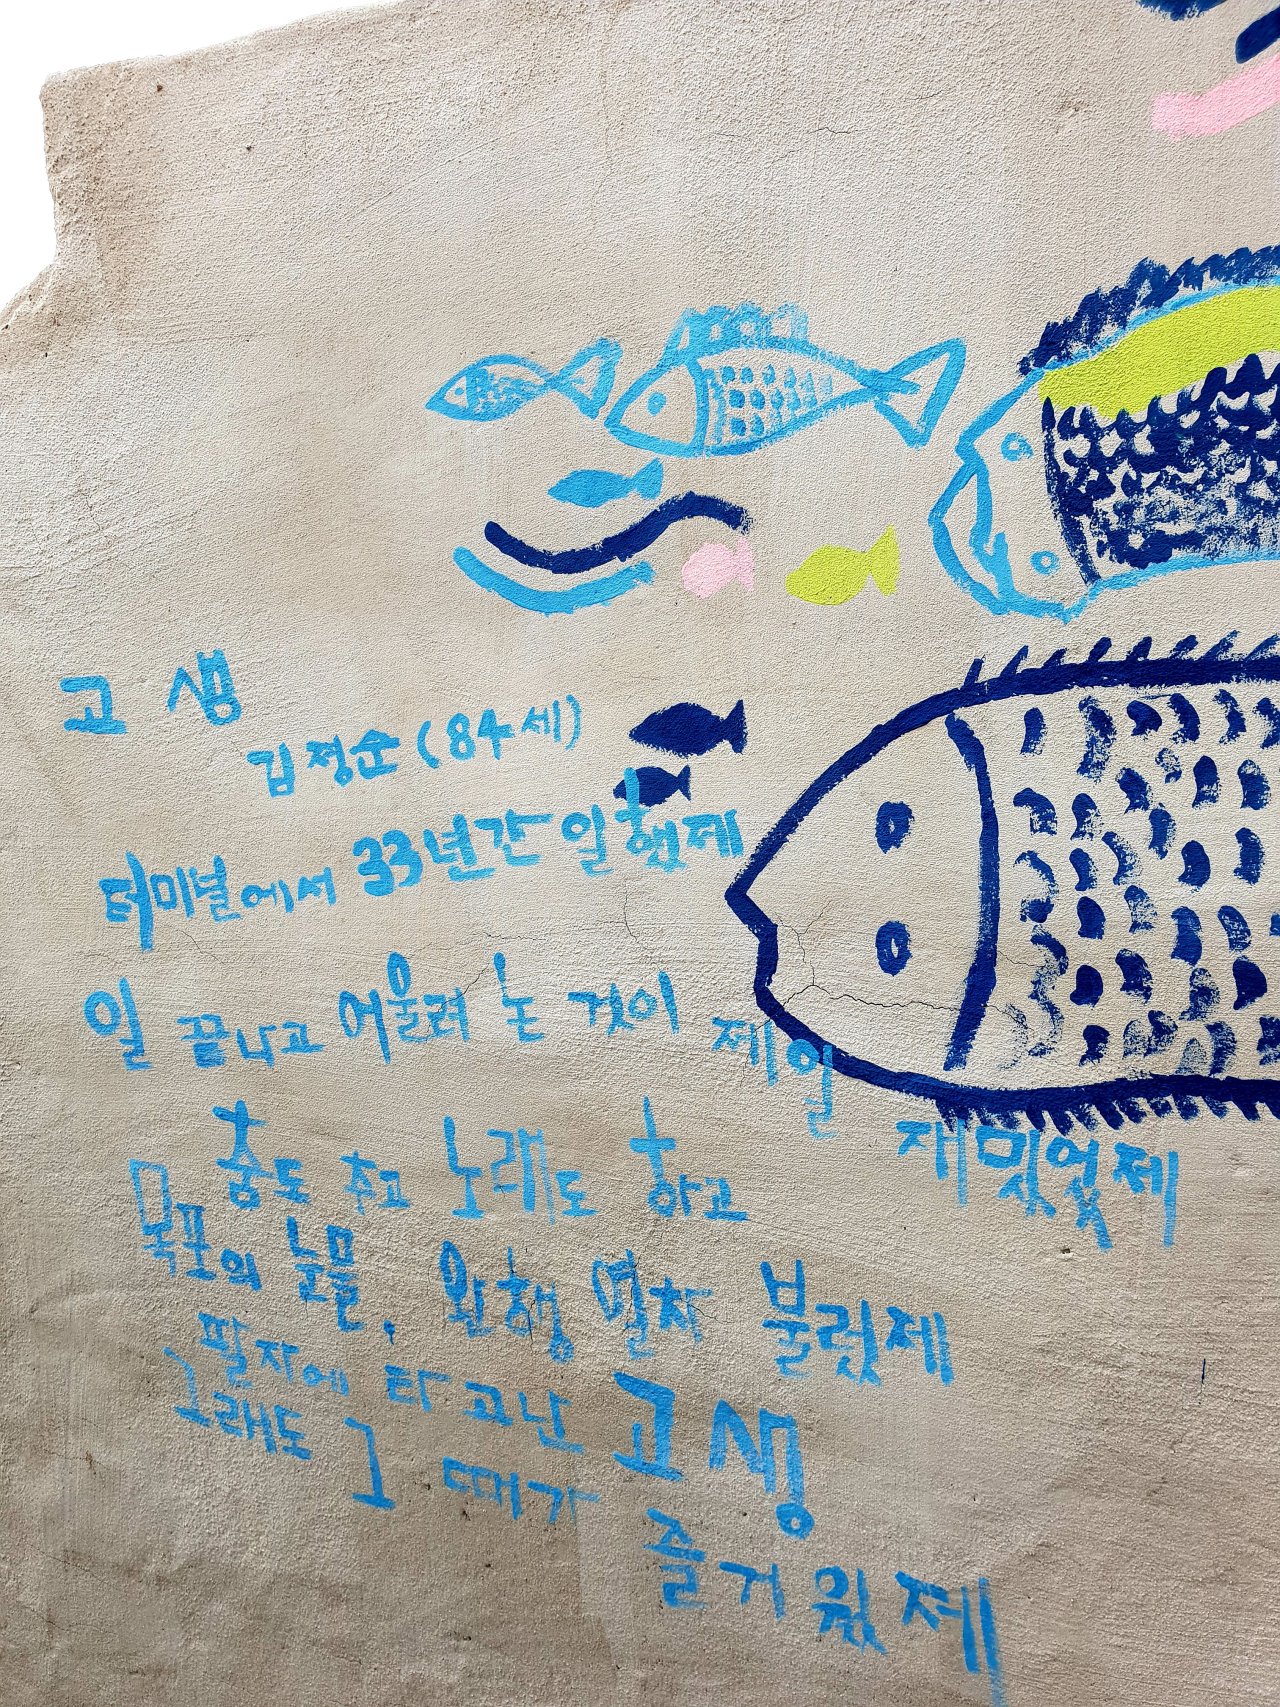 고생
김정순 (84세)
터미널에서 33년간 일했제
일 끝나고 어울려 논 것이 제일 재밌었제
춤도 추고 노래도 하고
목포의 눈물, 완행열차 불렀제
팔자에 타고난 고생
그래도 그 때가 즐거웠제